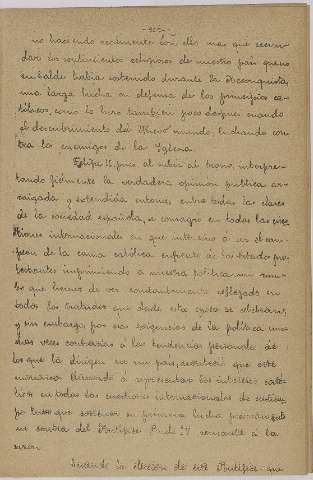 no haciendo realmente con ello mas que secun-
dar los sentimientos religiosos de nuestro pais que no
en balde habia sostenido durante la Reconquista
una larga lucha en defensa de los principios ca-
tólicos, como lo hizo tambien poco despues cuando
el descubrimiento del Nuevo mundo, luchando con-
tra los enemigos de la Iglesia.
Felipe II, pues al subir al trono, interpre-
tando fielmente la verdadera opinion publica ar-
raigada y estendida entonces entre todas las clases
de la sociedad española, se consagró en todas las cues-
tiones internacionales en que intervino á ser el cam-
peon de la causa católica enfrente de los Estados pro-
testantes imprimiendo á nuestra politica un
que hemos de ver constantemente reflejado en
todos los tratados que desde esta epoca se celebraron,
y sin embargo por esas exigencias de la politica mu-
chas veces contrarias á las tendencias personales de
los que la dirigen en un pais, sucedió que este
monarca llamado á representar los intereses cató-
licos en todas las cuestiones internacionales de su tiem-
po tuvo que sostener su primera lucha precisamente
en contra del Pontifice Paulo IV
Sucedió la eleccion de este Pontifice que